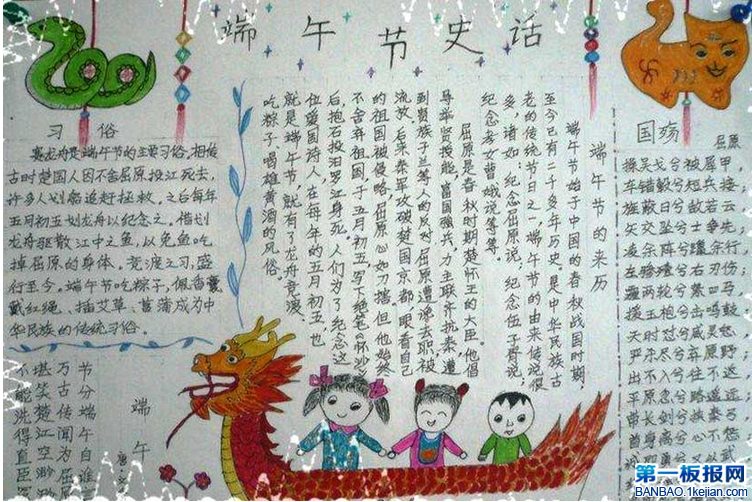 端午节史话
习俗
赛龙舟是端午节的主要习俗。相传
古时楚国人因不舍屈原投江死去,
许多人划船追赶拯救。之后每年
五月初五划龙舟以纪念之。借划
龙舟驱散江中之鱼,以免鱼吃
掉屈原的身体。竞渡之习,盛
行至今。端午节吃粽子,佩香囊,
戴红绳、插艾草、菖蒲成为中
华民族的传统习俗。
端午节的来历
端午节始于中国的春秋战国时期,
至今已有二千多年历史。是中华民族古
老的传统节日之一,端午节的由来传说很
多,诸如:纪念屈原说;纪念伍子胥说;
纪念孝女曹娥说等等。
屈原是春秋时期楚怀王的大臣。他倡
导举贤授能,富国强兵,力主联齐抗秦,遭
到贵族子兰等人的反对,屈原遭谗去职,被
流放。后来秦军攻破楚国京都,眼看自己
的祖国被侵略,屈原心如刀割,但他始终
不舍弃祖国,于五月初五写下绝笔《怀沙》
后,抱石投汨罗江身死。人们为了纪念这
位爱国诗人,在每年的五月初五,也
就是端午节,就有了龙舟竞渡、
吃粽子、喝雄黄酒的风俗。
国殇
屈原
操吴戈兮被犀甲,
车错毂兮短兵接,
旌蔽日兮敌若云,
矢交坠兮士争先,
凌余阵兮躐余行,
左骖殪兮右刃伤,
霾两轮兮絷四马,
援玉枹兮击鸣鼓,
天时怼兮威灵怒,
严杀尽兮弃原野,
出不入兮往不返,
平原忽兮路遥远,
带长剑兮挟秦弓,
首身离兮心不惩,
诚既勇兮又以武
端午
唐 文
节分端午自谁
万古传闻为屈
堪笑楚江空渺
不能洗得直臣
第一板报网
BANBAO.1kejian.com